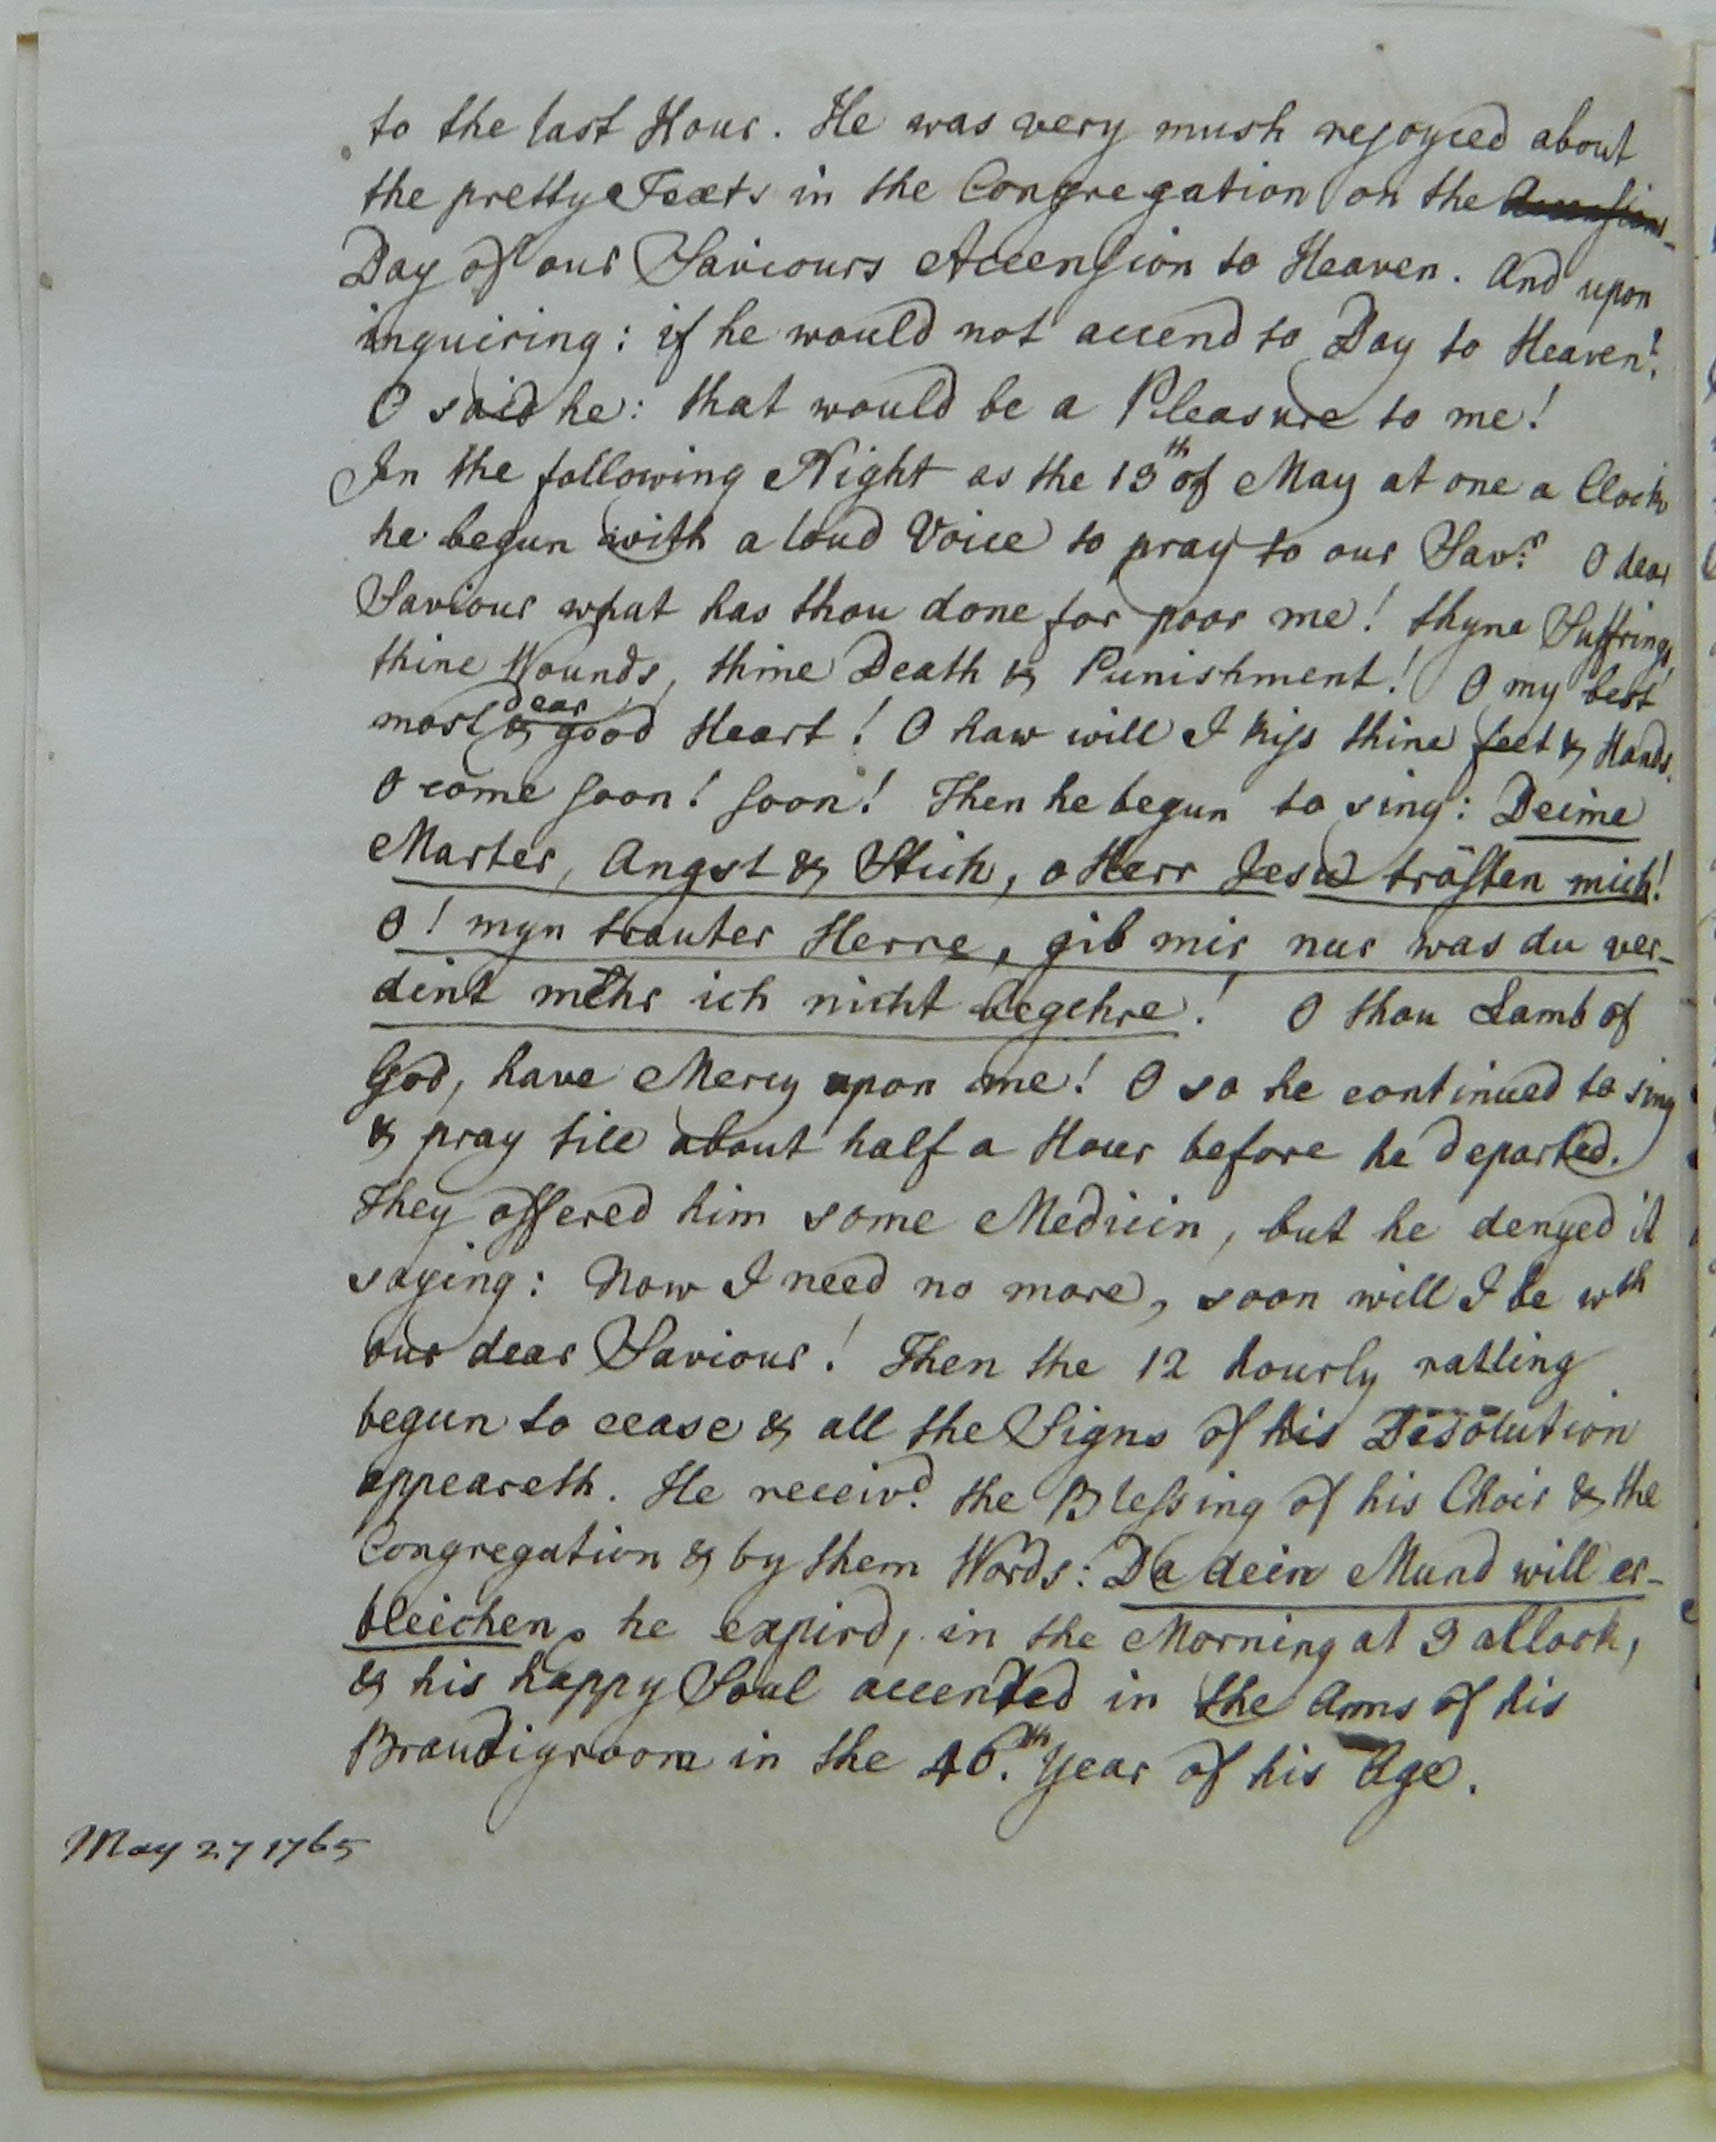 to the last Hour. He was very mush rejoyced about
the pretty Texts in the Congregation on the
Day of our Saviours Accension to Heaven. And upon
inquiring: if he would not accend to Day to Heaven?
O said he: that would be a Pleasure to me!
In the following Night as the 19th of May at one a Clock
he begun with a loud Voice to pray to our Savr. O dear
Saviour what has thou done for poor me! thyne Suffrings,
thine Wounds, thine Death & Punishment! O my best
most & dear good Heart! O haw will I kiss thine feet & Hands.
O come soon! soon! Then he begun to sing: Deine
Marter, Angst & Stich, o Herr Jesu trösten mich!
O! myn trauter Herre, gib mir nur was du ver-
dint mehr ich nicht begehre! O thou Lamb of
God, have Mercy upon me! O so he continued to sing
& pray till about half a Hour before he departed.
They offered him some Medicin, but he denyed it
saying: Now I need no more, soon will I be wth
our dear Saviour! Then the 12 hourly ratling
begun to cease & all the Signs of his Desolution
appeareth. He receivd. the Blessing of his Choir & the
Congregation & by them Words: Da dein Mund will er-
bleichen, he expird, in the Morning at 9 aClock,
& his happy Soul accended in the Arms of his
Braudigroom in the 46.th Year of his Age.
May 27 1765